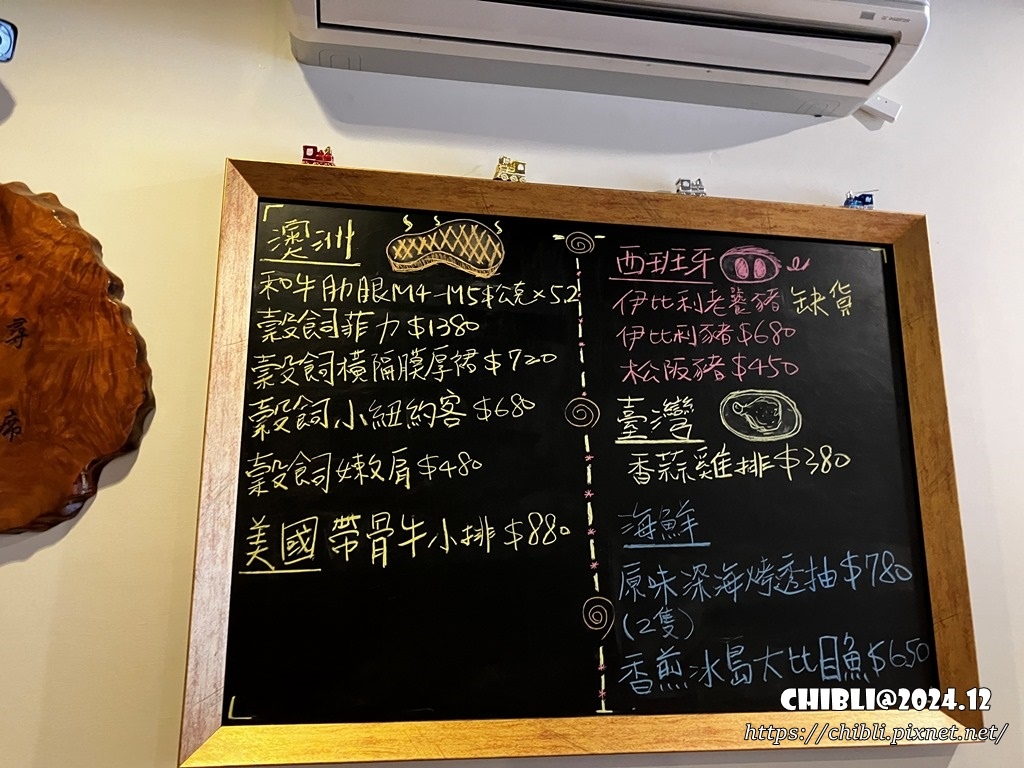 澳洲
和牛肋眼M4-M5 $公克×5.2
穀飼菲力$1380
穀飼橫隔膜厚裙$720
穀飼小紐約客$680
穀飼嫩肩$480
美國帶骨牛小排$880
西班牙
伊比利老饕豬 缺貨
伊比利豬$680
松阪豬$450
臺灣
香蒜雞排$380
海鮮
原味深海烤透抽$780
(2隻)
香煎冰島大比目魚$650
尋
席
CHIBLI@2024.12
https://chibli.pixnet.net/